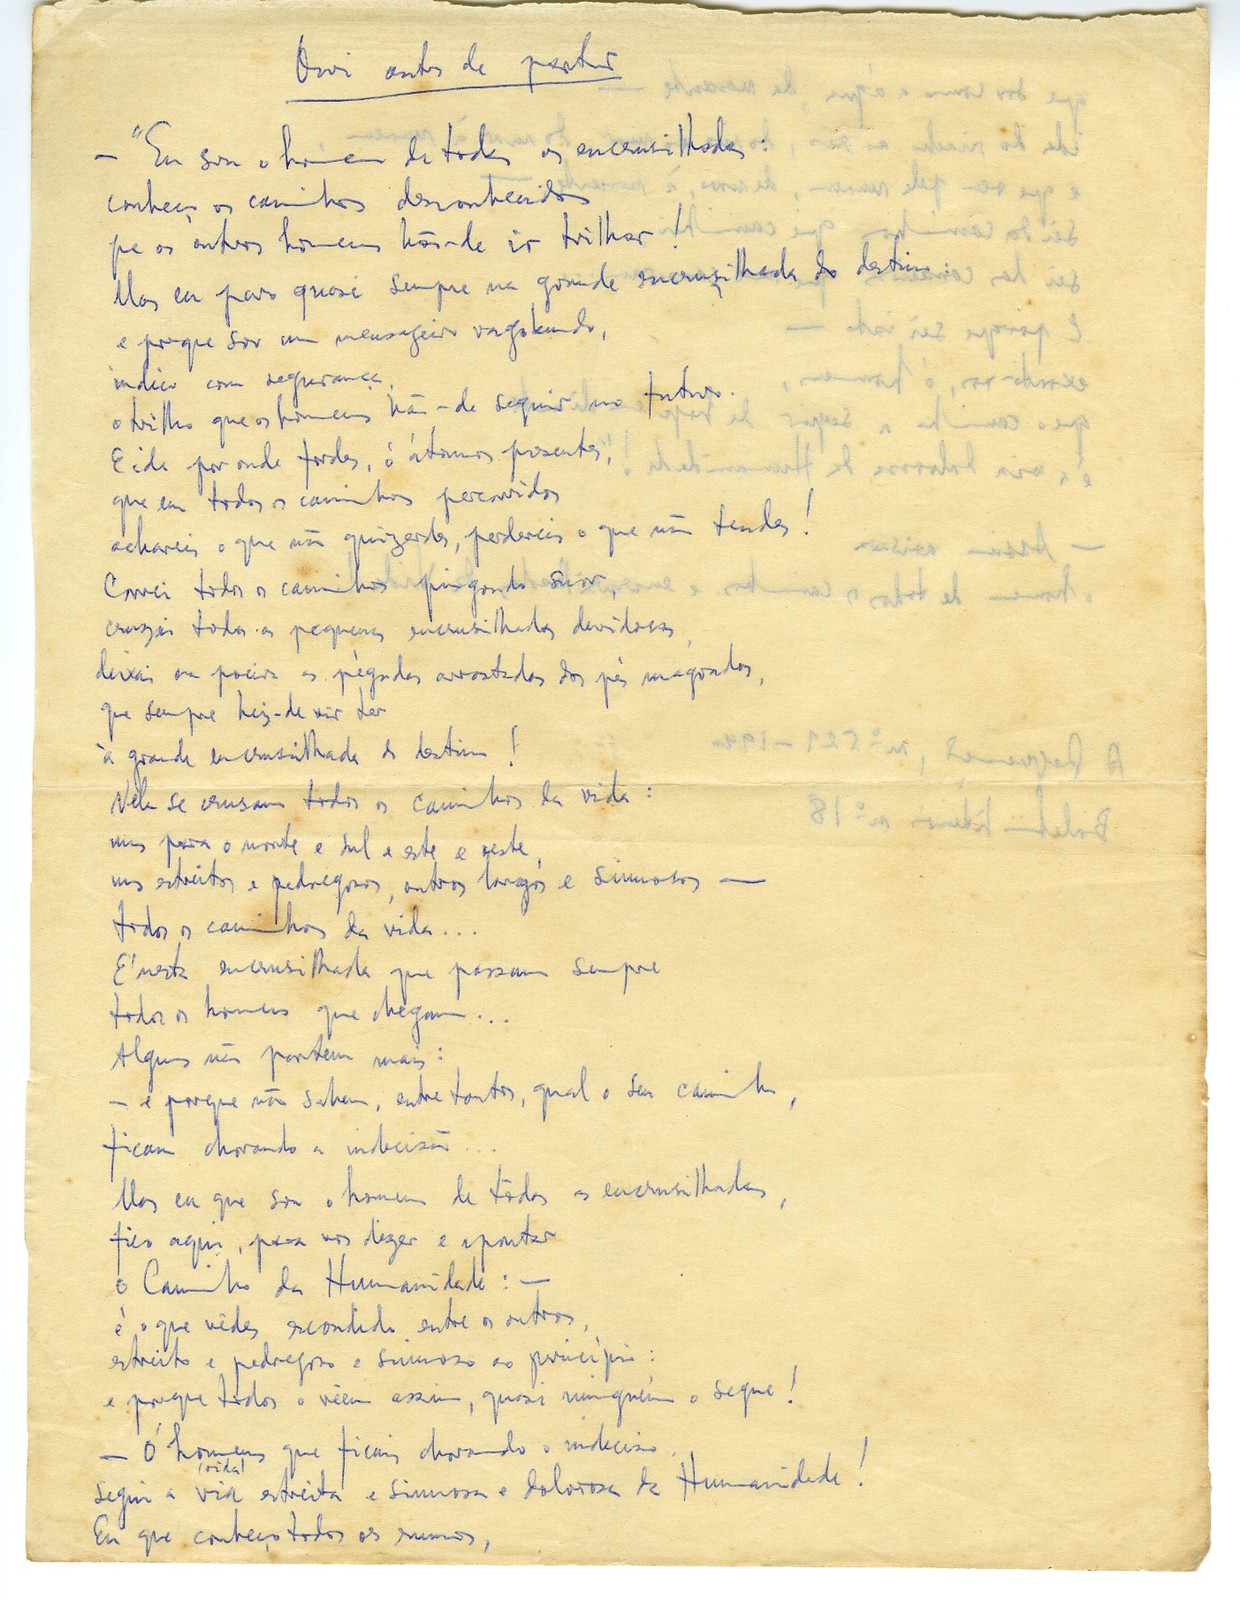 Ouvi antes de partir
— "Eu sou o homem de todas as encrusilhadas:
conheço os caminhos desconhecidos
que os outros homens hão-de ir trilhar!
Mas eu paro quasi sempre na grande encruzilhada do destino:
e porque sou um mensageiro vagabundo,
indico com segurança,
o trilho que os homens hão-de seguir no futuro.
E ide por onde fordes, ó átomos presentes,
que em todos os caminhos percorridos
achareis o que não quizerdes, perdereis o que não tendes!
Correi todos os caminhos pingando suor,
cruzai todas as pequenas encrusilhadas duvidosas,
deixai na poeira as pégadas arrastadas dos pés magoados,
que sempre heis-de vir ter
à grande encrusilhada do destino!
Nela se crusam todos os caminhos da vida:
uns para o norte e sul e este e oeste,
uns estreitos e pedregosos, outros largos e sinuosos —
todos os caminhos da vida...
E' nesta encrusilhada que passam sempre
todos os homens que chegam...
Alguns não partem mais:
— e porque não sabem, entre tantos, qual o seu caminho,
ficam chorando a indecisão...
Mas eu que sou o homem de tôdas as encrusilhadas,
fico aqui, para vos dizer e apontar
o Caminho da Humanidade: —
é o que vêdes escondido entre os outros,
estreito e pedregoso e sinuoso ao princípio:
e porque todos o vêem assim, quasi ninguém o segue!
— Ó homens que ficais chorando o indeciso,
(vida)
segui a via estreita e sinuosa e dolorosa da Humanidade!
Eu que conheço todos os rumos,